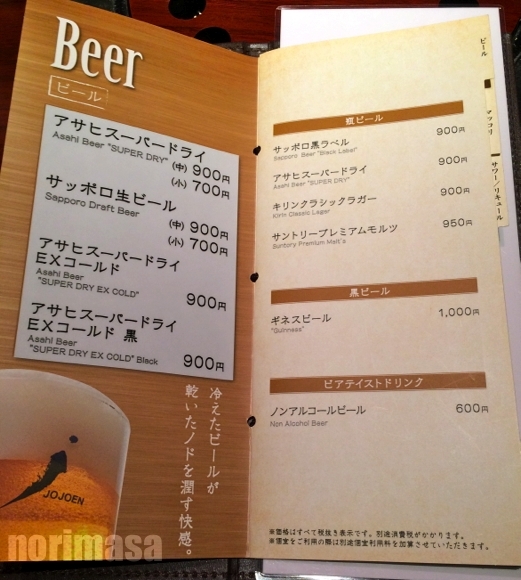 Beer
ビール
アサヒスーパードライ
Asahi Beer "SUPER DRY"
(中) 900円
(小) 700円
サッポロ生ビール
Sapporo Draft Beer
(中) 900円
(小) 700円
アサヒスーパードライ
EXコールド
Asahi Beer
"SUPER DRY EX COLD"
900円
アサヒスーパードライ
EXコールド 黒
Asahi Beer
"SUPER DRY EX COLD" Black
900円
冷えたビールが
乾いたノドを潤す快感。
JOJOEN
norimasa
瓶ビール
サッポロ黒ラベル 900円
Sapporo Beer "Black Label"
アサヒスーパードライ 900円
Asahi Beer "SUPER DRY"
キリンクラシックラガー 900円
Kirin Classic Lager
サントリープレミアムモルツ 950円
Suntory Premium Malt's
黒ビール
ギネスビール 1,000円
"Guinness"
ビアテイストドリンク
ノンアルコールビール 600円
Non Alcohol Beer
※価格はすべて税抜き表示です。別途消費税がかかります。
※個室をご利用の際は別途個室利用料を加算させていただきます。
ビール
マッコリ
サワー／リキュール